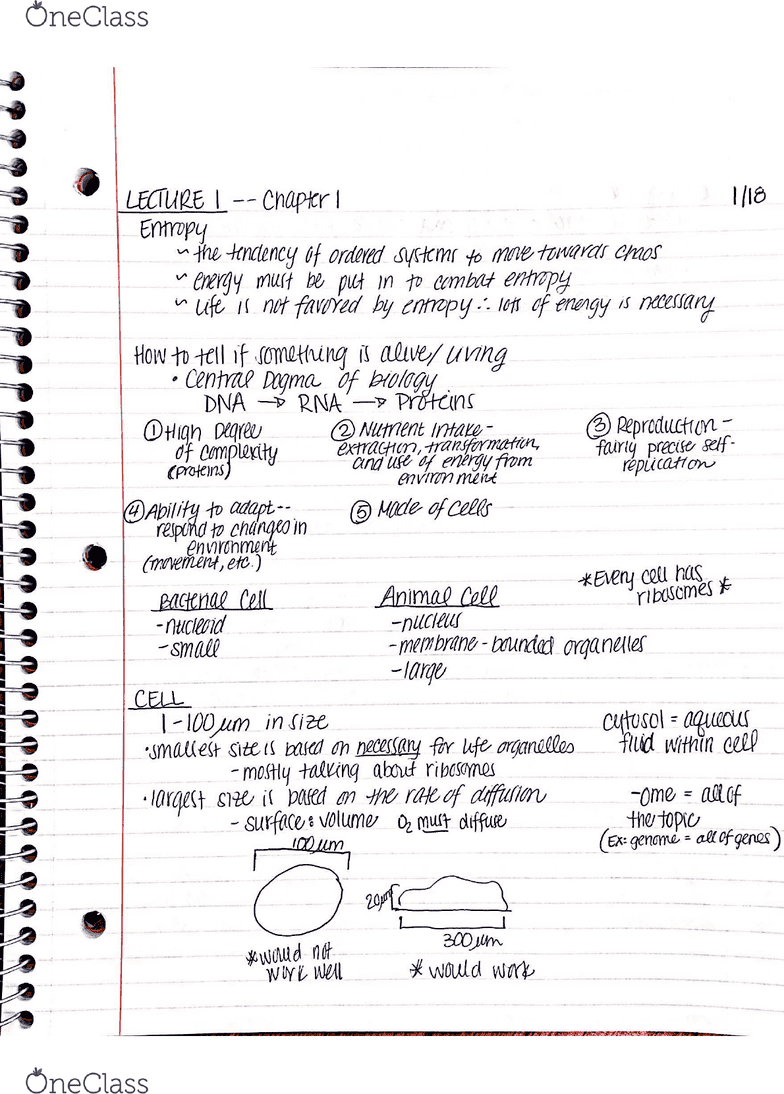 OneClass
LECTURE 1 -- Chapter 1
1/18
Entropy
~ the tendency of ordered systems to move towards chaos
~ energy must be put in to combat entropy
~ Life is not favored by entropy ∴ lots of energy is necessary
How to tell if something is alive/living
• Central Dogma of biology
DNA → RNA → Proteins
① High Degree
of complexity
(proteins)
② Nutrient Intake-
extraction, transformation,
and use of energy from
environment
③ Reproduction -
fairly precise self-
replication
④ Ability to adapt--
respond to changes in
environment
(movement, etc.)
⑤ Made of cells
*Every cell has
ribosomes*
Bacterial Cell
-nucleoid
-small
Animal Cell
-nucleus
-membrane-bounded organelles
-large
CELL
1-100 µm in size
•smallest size is based on necessary for life organelles
-mostly talking about ribosomes
•largest size is based on the rate of diffusion
- surface : volume O₂ must diffuse
cytosol = aqueous
fluid within cell
-ome = all of
the topic
(Ex: genome = all of genes)
100 µm
*would not
work well
20µm
300 µm
* would work
OneClass